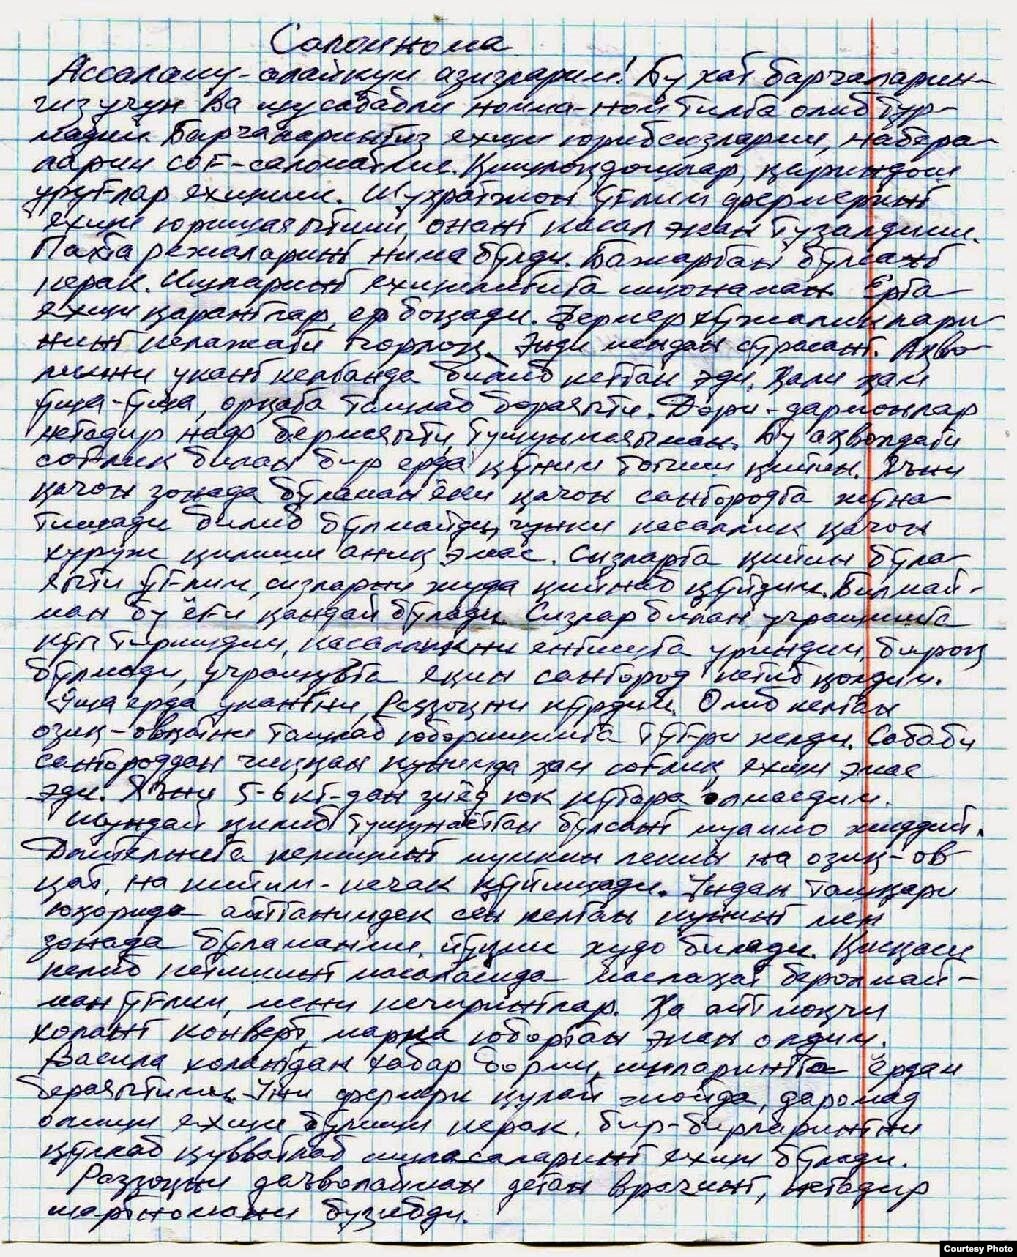 Саломнома
Ассалому-алайкум азизларим! Бу хат барчаларин-
гиз учун ва шу сабабли номма-ном тилга олиб ўтир-
мадим. Барчаларингиз яхши юрибсизларми, набера-
ларим соғ-саломатми. Қишлоқдошлар, қариндош
уруғлар яхшими. Шухратжон ўғлим фермеринг
яхши юришаяптими онанг касал экан тузалдими.
Пахта режаларинг нима бўлди. Бажарган бўлсанг
керак. Ишларинг яхшилигига ишонаман. Ерга
яхши қаранглар, ер боқади. Фермер хўжаликлари-
нинг келажаги порлоқ. Энди мендан сўрасанг. Ахво-
лимни уканг келганда билиб кетган эди. Хали хам
ўша-ўша, орқага ташлаб бораяпти. Дори-дармонлар
негадир наф бермаяпти, тушунмаяпман. Бу ахволдаги
соғлик билан бир ерда қўним топиш қийин. Яъни
қачон зонада бўламан ёки қачон сангородга жўна-
тишади билиб бўлмайди, чунки касаллик қачон
хуруж қилиши аниқ эмас. Сизларга қийин бўла-
япти ўғлим, сизларни жуда қийнаб қўйдим. Билмай-
ман бу ёғи қандай бўлади. Сизлар билан учрашишга
кўп тиришдим, касалликни енгишга уриндим, бироқ
бўлмади, учрашувга яқин сангород кетиб қолдим.
Ўша ерда укангни, Раззоқни кўрдим. Олиб келган
озиқ-овқатни ташлаб юборишимга тўғри келди. Сабаби
сангороддан чиққан кунимда хам соғлик яхши эмас
эди. Яъни 5-6 кг-дан зиёд юк кўтара олмасдим.
Шундай қилиб тушунаётган бўлсанг муаммо жиддий.
Длительнега келишинг мумкин лекин на озиқ-ов-
қат, на кийим-кечак қўйишади. Ундан ташқари
юқорида айтганимдек сен келган кунинг мен
зонада бўламанми, йўқми худо билади. Қисқаси
келиб кетишинг масаласида маслахат беролмай-
ман ўғлим, мени кечиринглар. Ха айтмоқчи
холанг конверт, марка юборган экан олдим.
Васила холангдан хабар борми, ишларингга ёрдам
бераяптими. Уни фермери қулай жойда, даромад
олиши яхши бўлиши керак, бир-бирларингни
қўллаб қувватлаб ишласаларинг яхши бўлади.
Раззоқни даволайман деган врачинг, негадир
шартномани бузибди.
Courtesy Photo